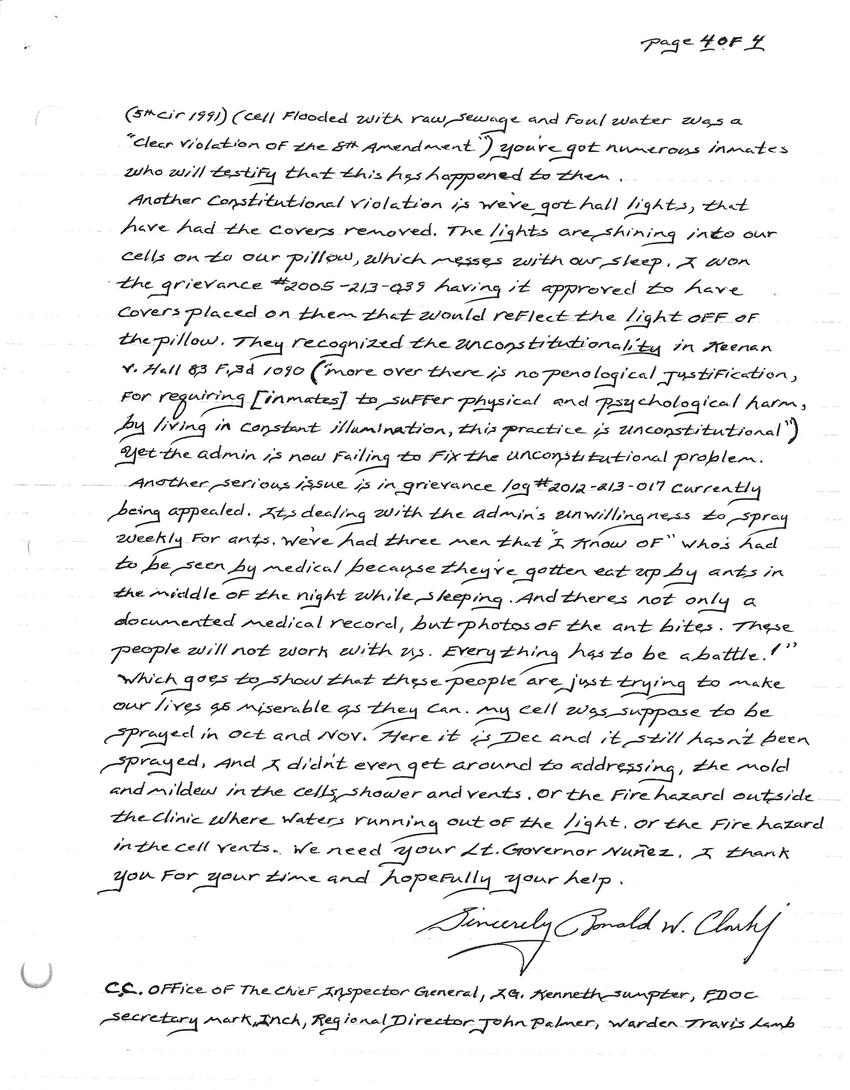 page 4 OF 4
(5th Cir 1991) (cell Flooded with raw sewage and Foul water was a
"Clear violation OF the 8th Amendment") you've got numerous inmates
who will testify that this has happened to them.
Another Constitutional violation is we've got hall lights, that
have had the covers removed. The lights are shining into our
cells on to our pillow, which messes with our sleep. I won
the grievance #2005-213-039 having it approved to have
Covers placed on them that would reflect the light OFF OF
the pillow. They recognized the unconstitutionality in Keenan
v. Hall 83 F.3d 1090 ("more over there is no penological justification,
For requiring [inmates] to suffer physical and psychological harm,
by living in constant illumination, this practice is unconstitutional")
Yet the admin is now Failing to Fix the unconstitutional problem.
Another serious issue is in grievance log #2012-213-017 currently
being appealed. Its dealing with the admin's unwillingness to spray
weekly For ants. We've had three men that "I know OF" who's had
to be seen by medical because they've gotten eat up by ants in
the middle OF the night while sleeping. And theres not only a
documented medical record, but photos OF the ant bites. These
people will not work with us. Everything has to be a battle!"
Which goes to show that these people are just trying to make
our lives as miserable as they can. My cell was suppose to be
sprayed in Oct and Nov. Here it is Dec and it still hasn't been
sprayed, And I didn't even get around to addressing, the mold
and mildew in the cells, shower and vents. Or the Fire hazard outside
the clinic where waters running out OF the light. Or the Fire hazard
in the cell vents. We need your Lt. Governor Nuñez. I thank
you For your time and hopefully your help.
Sincerely Ronald W. Clark Jr
C.C. OFFice OF The Chief Inspector General, I.G. Kenneth Sumpter, FDOC
secretary Mark Inch, Regional Director John Palmer, Warden Travis Lamb